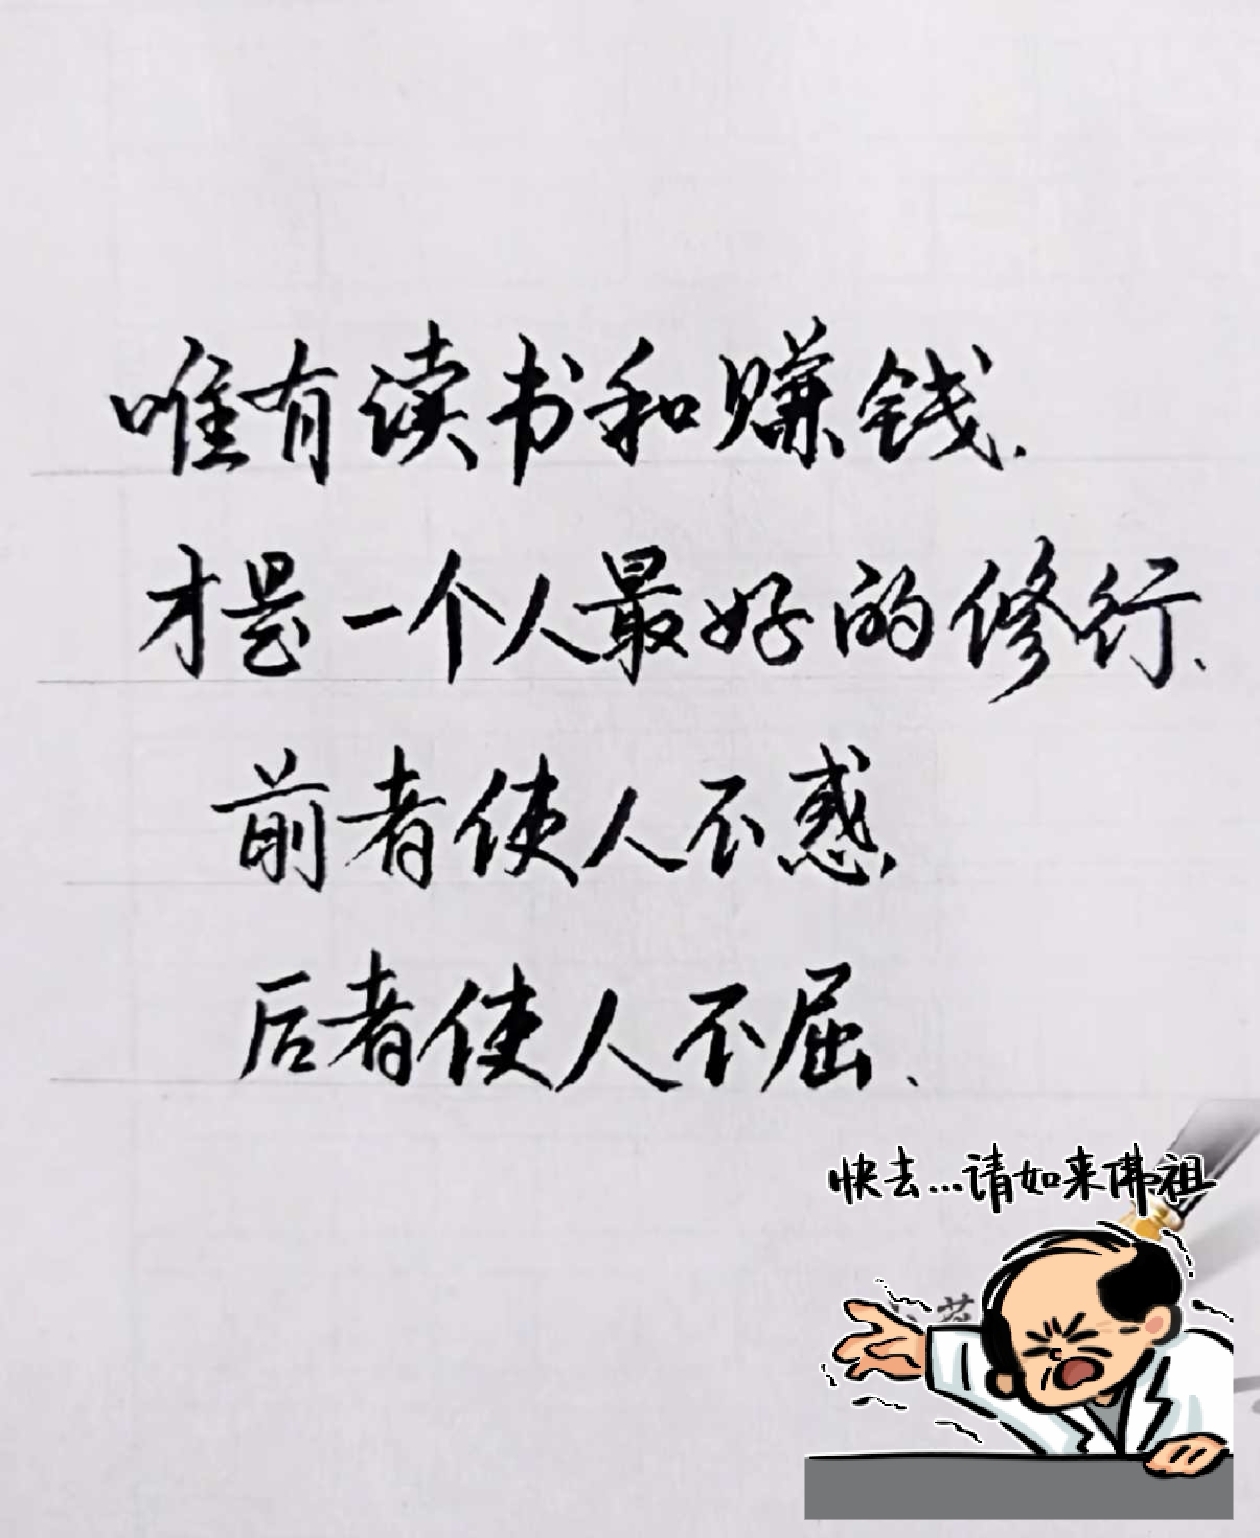 唯有读书和赚钱.
才是一个人最好的修行、
前者使人不惑、
后者使人不屈、
快去...请如来佛祖